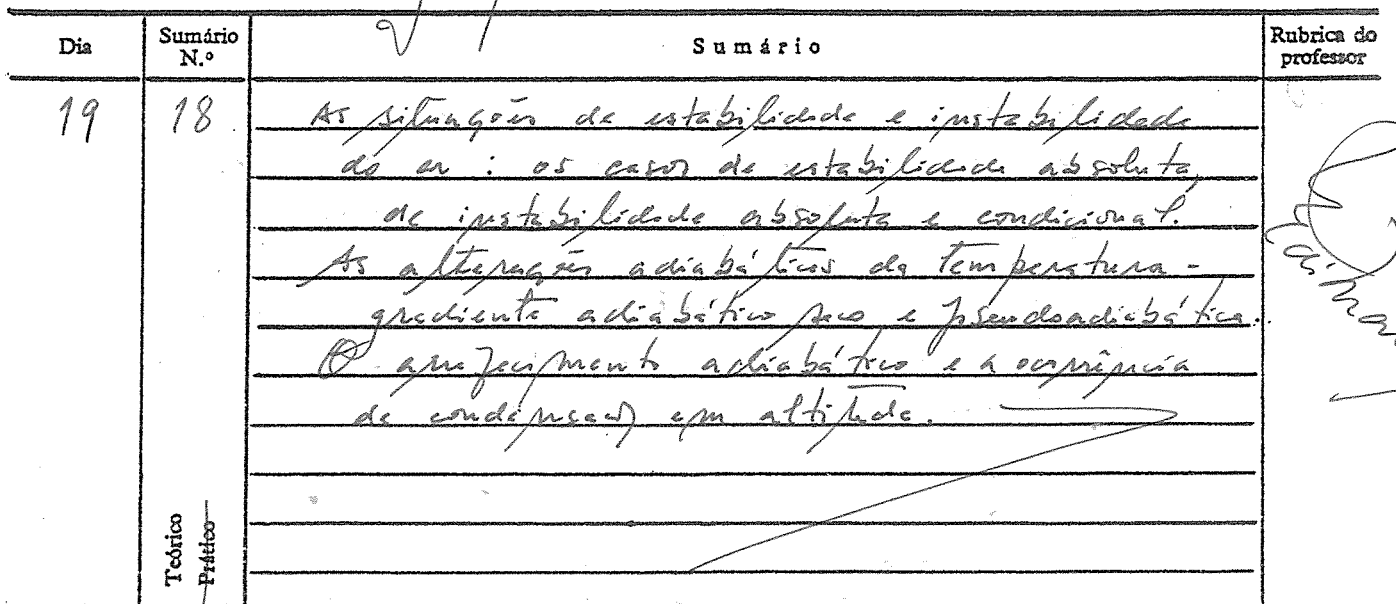 Dia Sumário N.º Sumário Rubrica do professor
19 18 As situações de estabilidade e instabilidade
do ar : os casos de estabilidade absoluta,
de instabilidade absoluta e condicional.
As alterações adiabáticas da temperatura -
gradiente adiabático seco e pseudoadiabático.
O arrefecimento adiabático e a ocorrência
de condensação em altitude.
Teórico
Prático